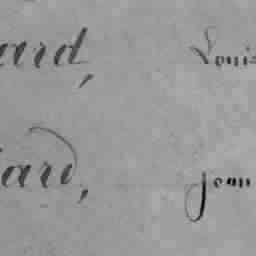 ard, Louis
iard, jean